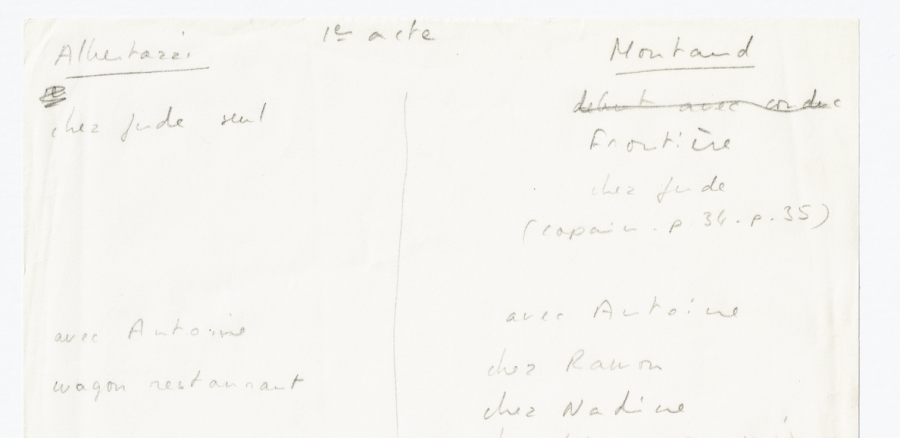 1er acte
Albertazzi
chez Jude seul
avec Antoine
wagon restaurant
Montand
début avec conduc
Frontière
chez Jude
(copain. p 34. p. 35)
avec Antoine
chez Ramon
chez Nadine